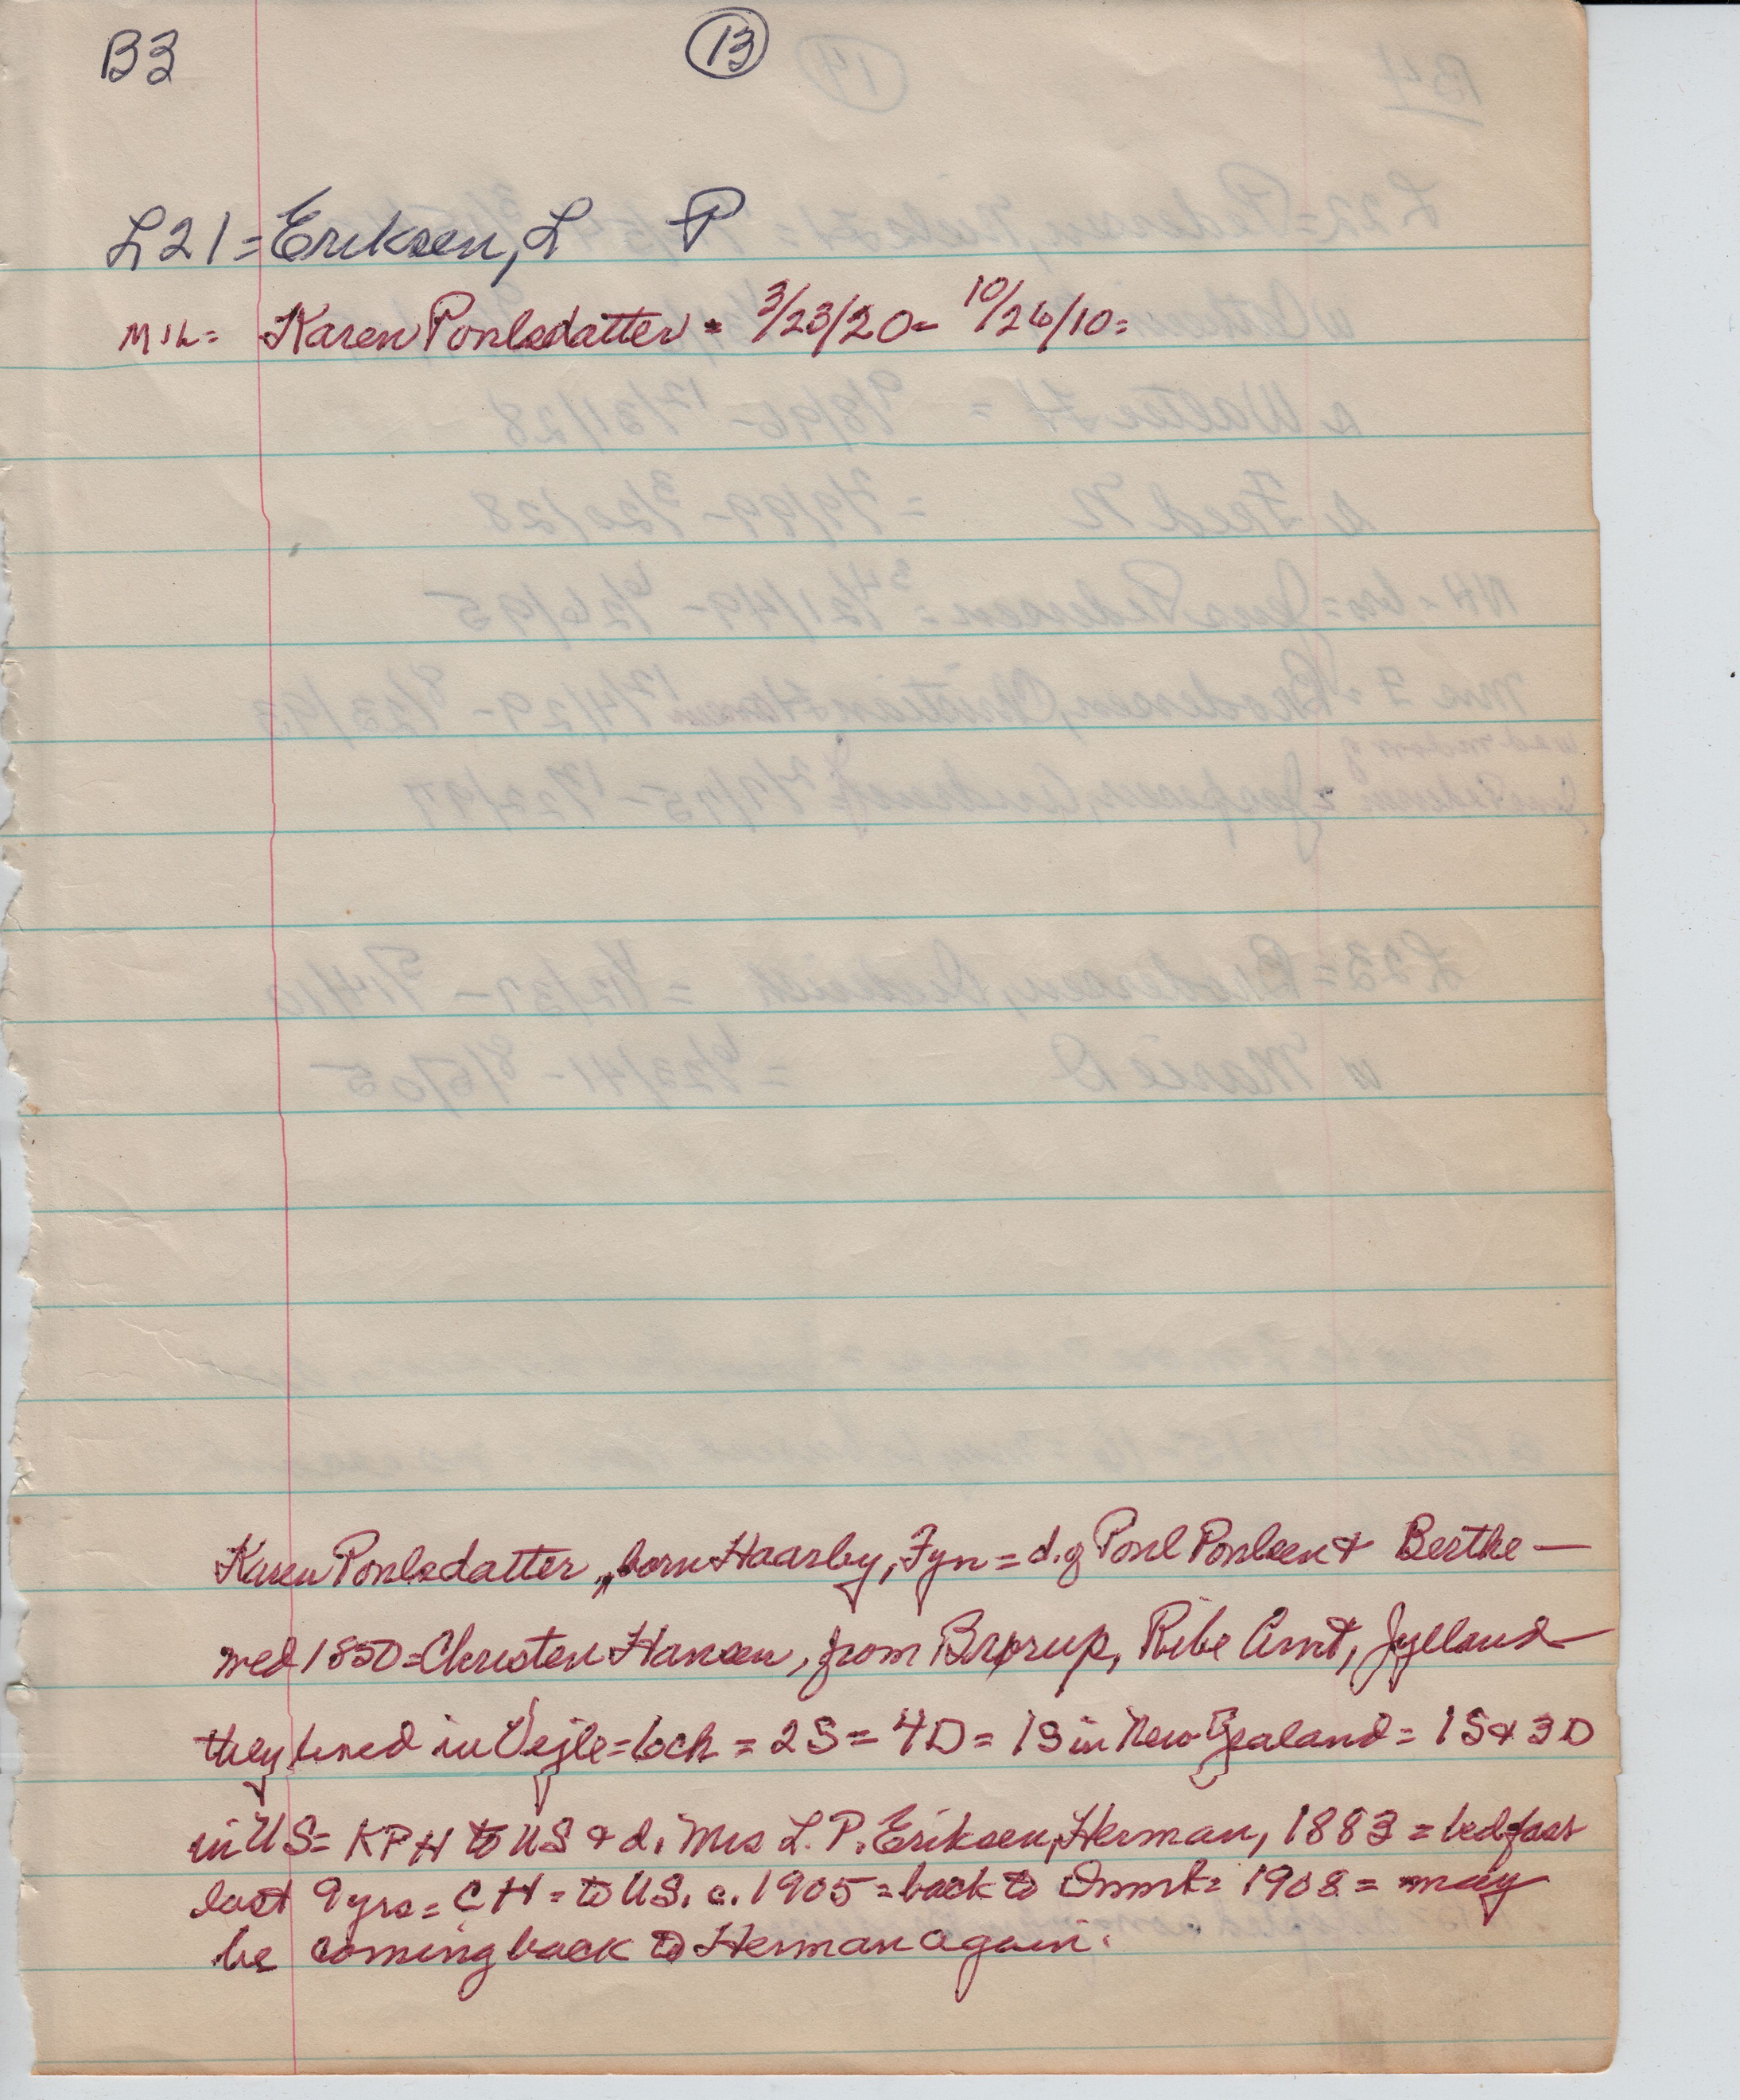 B3 13
L21 = Eriksen, L P
MIL = Karen Poulsdatter = 3/23/20 - 10/26/10 =
Karen Poulsdatter, born Haarby, Fyn = d. of Poul Poulsen & Berthe —
wed 1850 = Christen Hansen, from Brørup, Ribe Amt, Jylland —
they lived in Vejle = 6 ch = 2S = 4D = 1S in New Zealand = 1S & 3D
in US = KPH to US & d. Mrs L. P. Eriksen, Herman, 1883 = bedfast
last 9 yrs = CH = to US. c. 1905 = back to Dnmrk = 1908 = may
be coming back to Herman again.